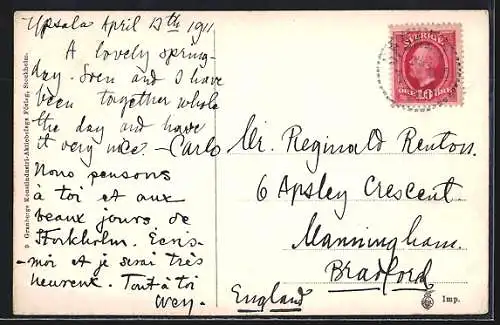 Upsala April 17th 1911
A lovely spring-
day. Sven and I have
been together whole
the day and have
it very nice. - Carlo
Nous pensons
à toi et aux
beaux jours de
Stockholm. Ecris-
-moi et je serai très
heureux. Tout à toi
Sven.
9 Granbergs Konstindustri-Aktiebolags Förlag, Stockholm.
SVERIGE
ÖRE 10 ÖRE
Mr. Reginald Renton.
6 Apsley Crescent
Manningham.
Bradford
England
Imp.